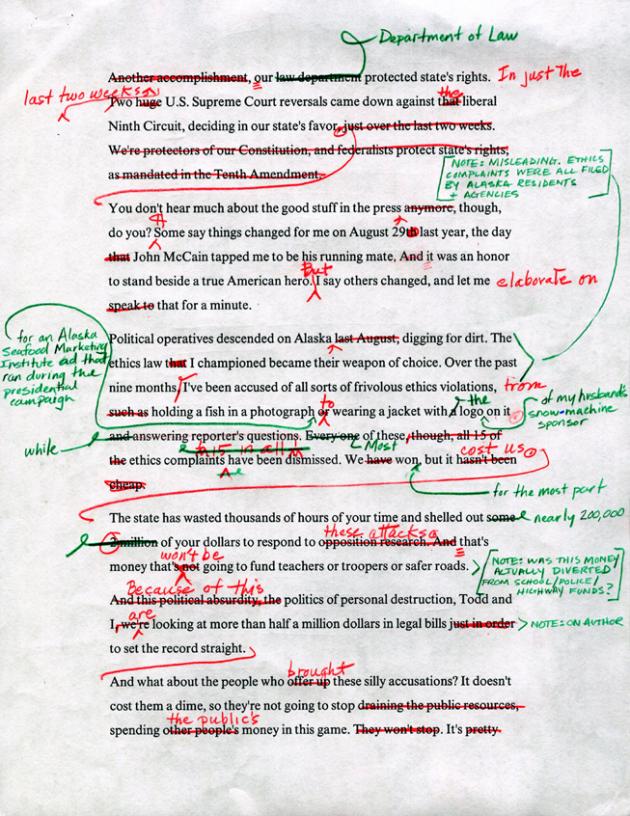 Department of Law
Another accomplishment, our law department protected state's rights. In just the
last two weeks
Two huge U.S. Supreme Court reversals came down against that the liberal
Ninth Circuit, deciding in our state's favor, just over the last two weeks.
We're protectors of our Constitution, and federalists protect state's rights,
as mandated in the Tenth Amendment.
NOTE: MISLEADING. ETHICS
COMPLAINTS WERE ALL FILED
BY ALASKA RESIDENTS
+ AGENCIES
You don't hear much about the good stuff in the press anymore, though,
do you? Some say things changed for me on August 29th last year, the day
that John McCain tapped me to be his running mate. And it was an honor
to stand beside a true American hero. But I say others changed, and let me elaborate on
speak to that for a minute.
for an Alaska
Seafood Marketing
Institute ad that
ran during the
presidential
campaign
Political operatives descended on Alaska last August, digging for dirt. The
ethics law that I championed became their weapon of choice. Over the past
nine months, I've been accused of all sorts of frivolous ethics violations, from
such as holding a fish in a photograph or to wearing a jacket with a the logo on it
of my husband's
snow-machine
sponsor
while
and answering reporter's questions. Every one Most of these, though, all 15 of
the 15 in all ethics complaints have been dismissed. We have won, but it hasn't been cost us
cheap.
for the most part
The state has wasted thousands of hours of your time and shelled out some nearly 200,000
2 million of your dollars to respond to opposition research. these attacks And that's
money that's not won't be going to fund teachers or troopers or safer roads.
NOTE: WAS THIS MONEY
ACTUALLY DIVERTED
FROM SCHOOL/POLICE/
HIGHWAY FUNDS?
Because of this
And this political absurdity, the politics of personal destruction, Todd and
I, we're are looking at more than half a million dollars in legal bills just in order
NOTE: ON AUTHOR
to set the record straight.
And what about the people who offer up brought these silly accusations? It doesn't
cost them a dime, so they're not going to stop draining the public resources,
spending other people's the public's money in this game. They won't stop. It's pretty